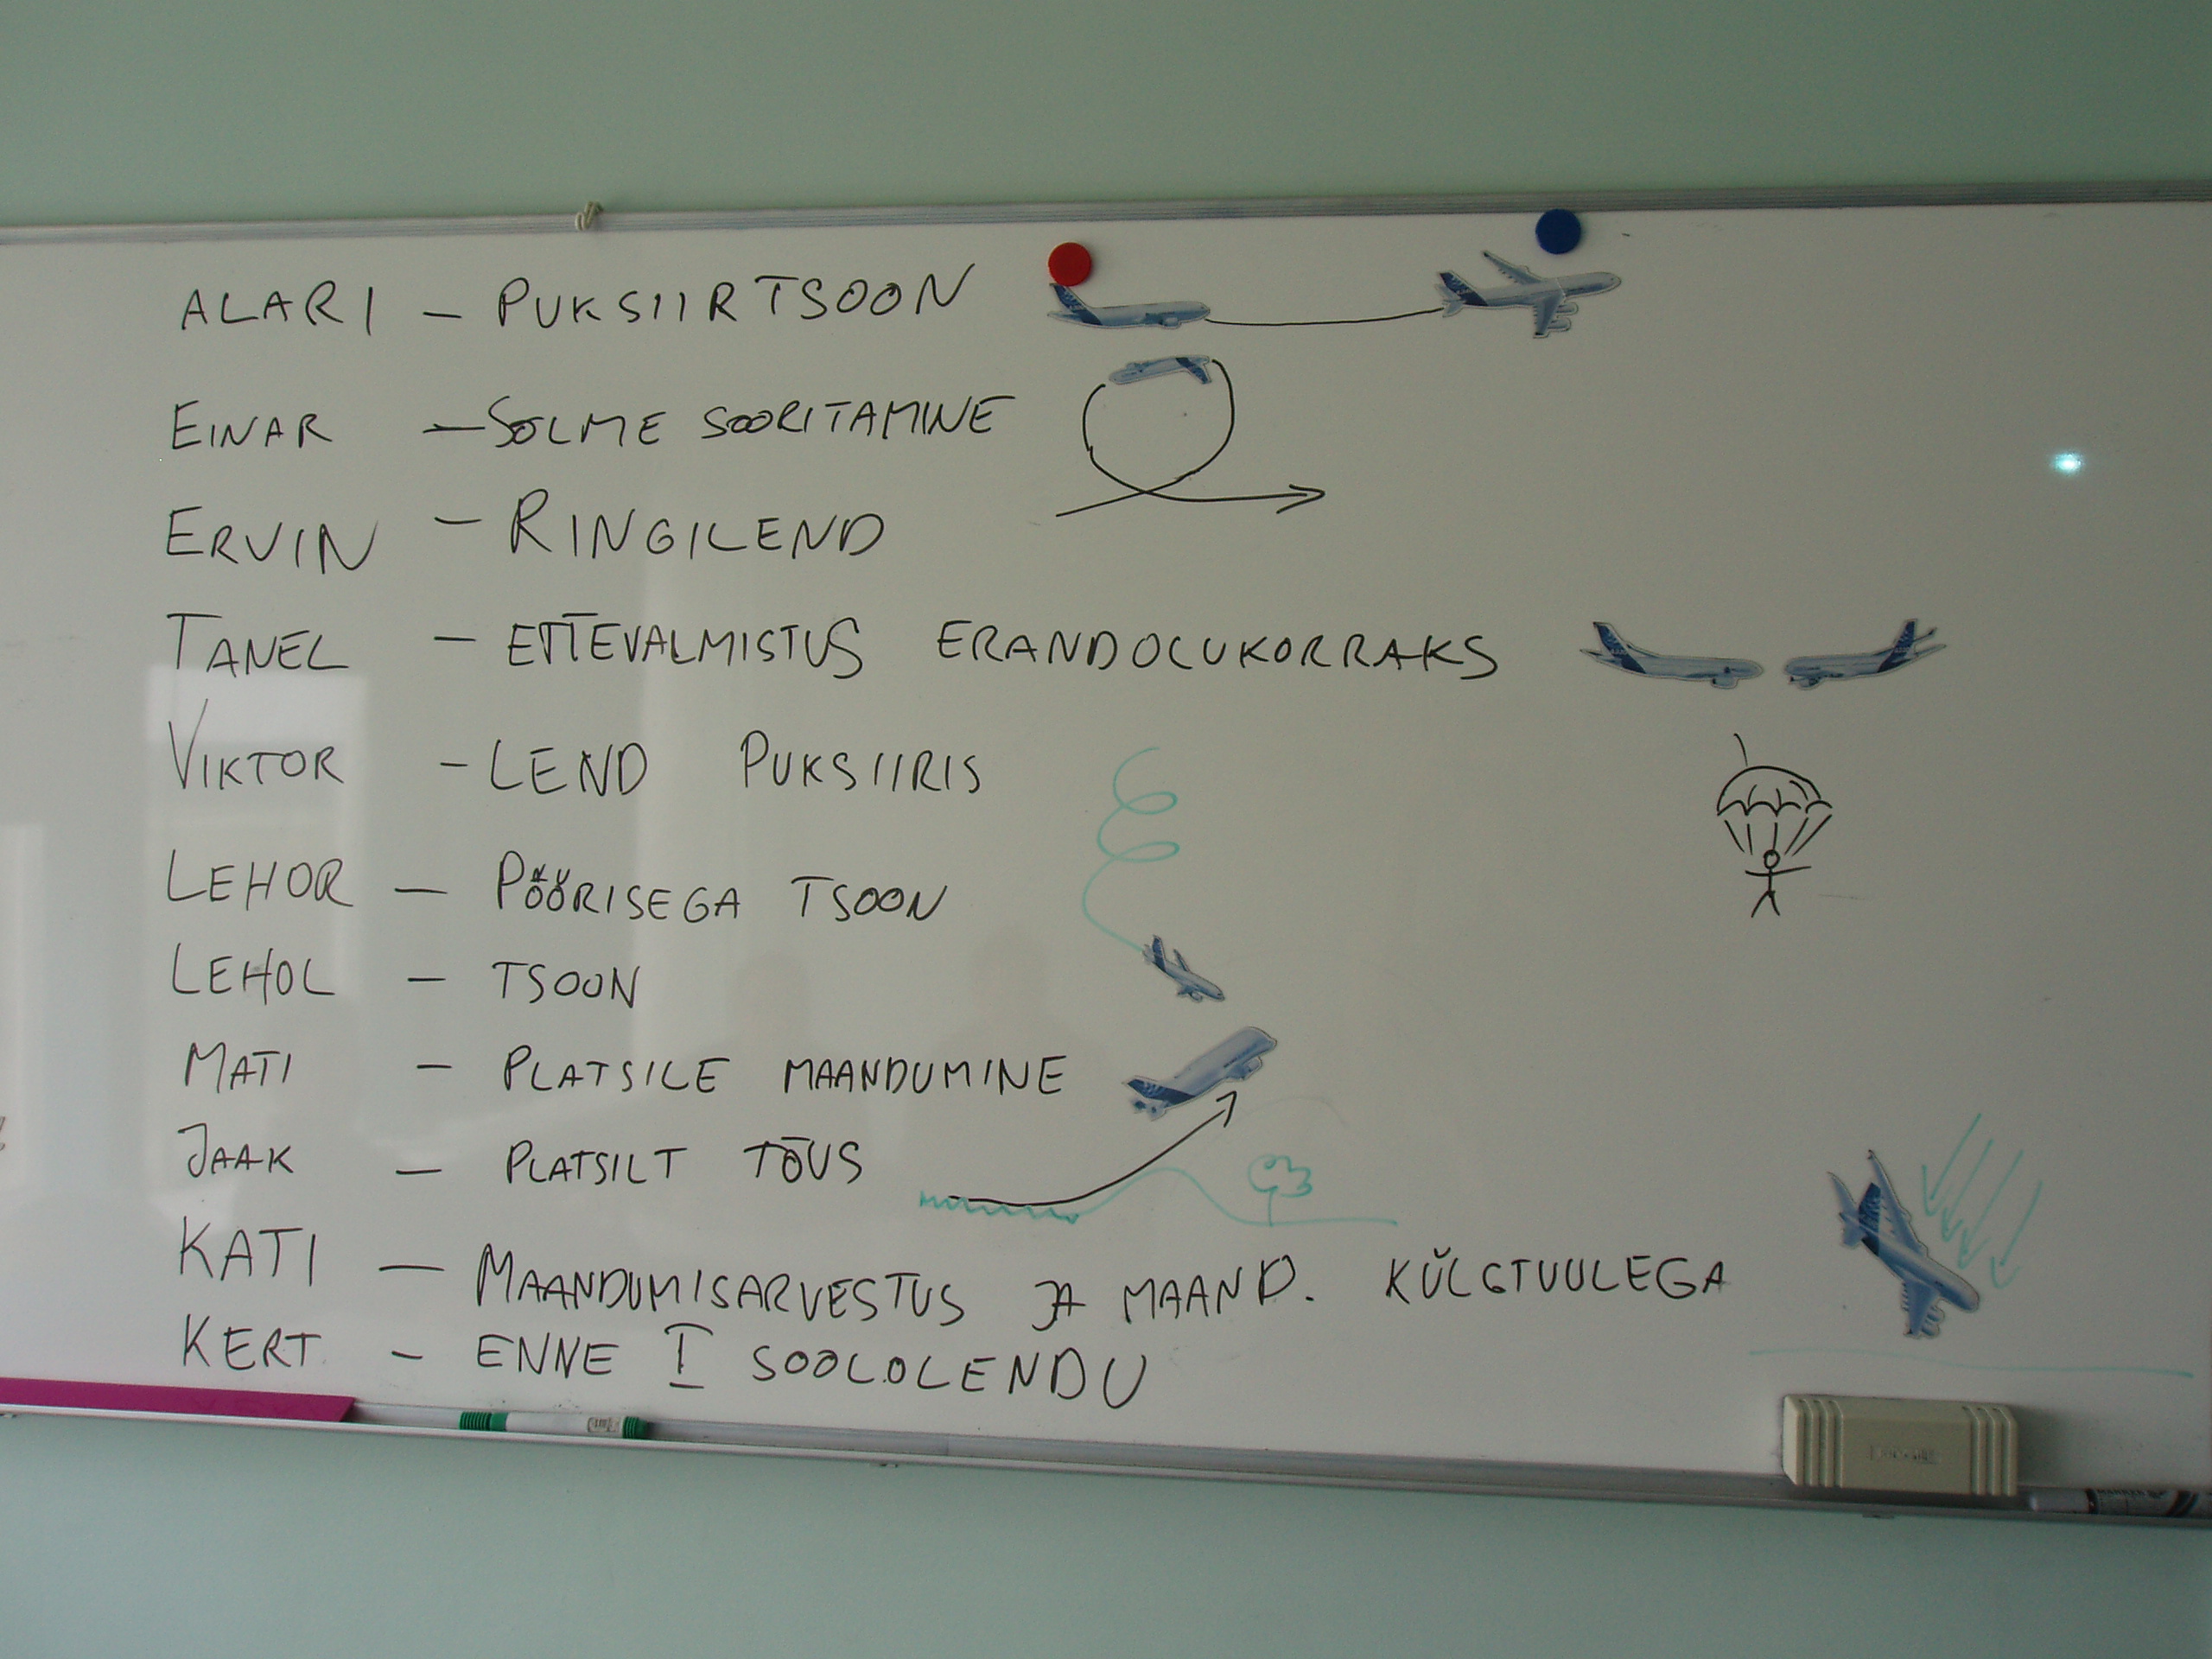 ALARI – PUKSIIRTSOON
EINAR – SÕLME SOORITAMINE
ERVIN – RINGILEND
TANEL – ETTEVALMISTUS ERANDOLUKORRAKS
VIKTOR – LEND PUKSIIRIS
LEHOR – PÖÖRISEGA TSOON
LEHOL – TSOON
MATI – PLATSILE MAANDUMINE
JAAK – PLATSILT TÕUS
KATI – MAANDUMISARVESTUS JA MAAND. KÜLGTUULEGA
KERT – ENNE I SOOLOLENDU